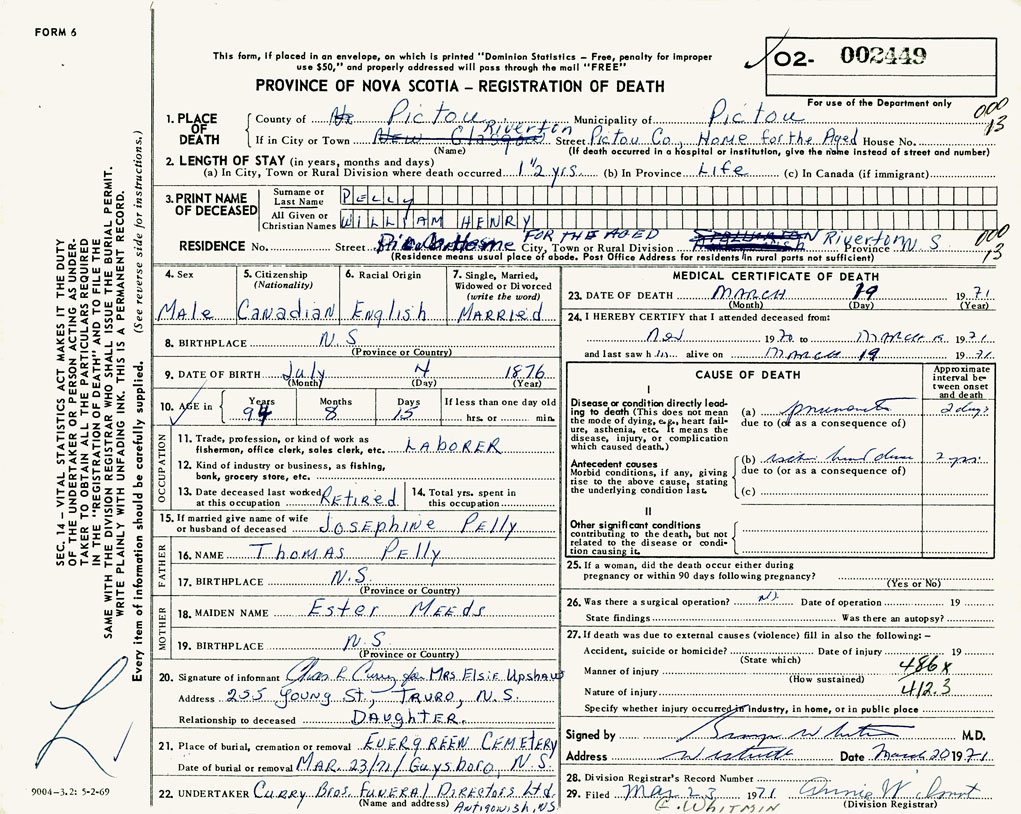 FORM 6
This form, if placed in an envelope, on which is printed "Dominion Statistics – Free, penalty for improper
use $50," and properly addressed will pass through the mail "FREE"
PROVINCE OF NOVA SCOTIA – REGISTRATION OF DEATH
O2- 002449
For use of the Department only
000
13
1. PLACE OF DEATH
County of Pictou Municipality of Pictou
If in City or Town New Glasgow Riverton Street Pictou Co. Home for the Aged House No.
(Name) (If death occurred in a hospital or institution, give the name instead of street and number)
2. LENGTH OF STAY (in years, months and days)
(a) In City, Town or Rural Division where death occurred 1 1/2 yrs. (b) In Province Life (c) In Canada (if immigrant)
3. PRINT NAME OF DECEASED
Surname or Last Name PELLY
All Given or Christian Names WILLIAM HENRY
RESIDENCE No. Street Home FOR THE AGED City, Town or Rural Division Riverton Province N S
000
13
(Residence means usual place of abode. Post Office Address for residents in rural parts not sufficient)
4. Sex Male
5. Citizenship (Nationality) Canadian
6. Racial Origin English
7. Single, Married, Widowed or Divorced (write the word) MARRIED
8. BIRTHPLACE N.S.
(Province or Country)
9. DATE OF BIRTH July 4 1876
(Month) (Day) (Year)
10. AGE in Years 94 Months 8 Days 15 If less than one day old hrs. or min.
OCCUPATION
11. Trade, profession, or kind of work as fisherman, office clerk, sales clerk, etc. LABORER
12. Kind of industry or business, as fishing, bank, grocery store, etc.
13. Date deceased last worked at this occupation RETIRED
14. Total yrs. spent in this occupation
15. If married give name of wife or husband of deceased JOSEPHINE PELLY
FATHER
16. NAME THOMAS PELLY
17. BIRTHPLACE N.S.
(Province or Country)
MOTHER
18. MAIDEN NAME ESTER MEEDS
19. BIRTHPLACE N.S
(Province or Country)
20. Signature of informant Chas. R. Curry for MRS. ELSIE UPSHAW
Address 255 YOUNG ST., TRURO, N.S.
Relationship to deceased DAUGHTER.
21. Place of burial, cremation or removal EVERGREEN CEMETERY
Date of burial or removal MAR. 23/71 / Guysboro, N.S.
22. UNDERTAKER CURRY BROS. FUNERAL DIRECTORS Ltd.
(Name and address) ANTIGONISH, NS
MEDICAL CERTIFICATE OF DEATH
23. DATE OF DEATH MARCH 19 1971
(Month) (Day) (Year)
24. I HEREBY CERTIFY that I attended deceased from:
Nov 1970 to March 19 1971
and last saw him alive on March 19 1971
CAUSE OF DEATH
Approximate interval between onset and death
I
Disease or condition directly leading to death (This does not mean the mode of dying, e.g., heart failure, asthenia, etc. It means the disease, injury, or complication which caused death.)
(a) pneumonia 2 days
due to (or as a consequence of)
Antecedent causes
Morbid conditions, if any, giving rise to the above cause, stating the underlying condition last.
(b) heart 2 yrs
due to (or as a consequence of)
(c)
II
Other significant conditions contributing to the death, but not related to the disease or condition causing it.
25. If a woman, did the death occur either during pregnancy or within 90 days following pregnancy?
(Yes or No)
26. Was there a surgical operation? No Date of operation 19
State findings Was there an autopsy?
27. If death was due to external causes (violence) fill in also the following: –
Accident, suicide or homicide? Date of injury 19
(State which)
Manner of injury 486x
(How sustained)
Nature of injury 412.3
Specify whether injury occurred in industry, in home, or in public place
Signed by M.D.
Address Westville Date March 20 1971
28. Division Registrar's Record Number
29. Filed May 23 1971 Annie
E. WHITMIN (Division Registrar)
SEC. 14 – VITAL STATISTICS ACT MAKES IT THE DUTY
OF THE UNDERTAKER OR PERSON ACTING AS UNDER-
TAKER TO OBTAIN ALL THE PARTICULARS REQUIRED
IN THE "REGISTRATION OF DEATH" AND TO FILE THE
SAME WITH THE DIVISION REGISTRAR WHO SHALL ISSUE THE BURIAL PERMIT.
WRITE PLAINLY WITH UNFADING INK. THIS IS A PERMANENT RECORD.
Every item of information should be carefully supplied. (See reverse side for instructions.)
9004-3.2: 5-2-69